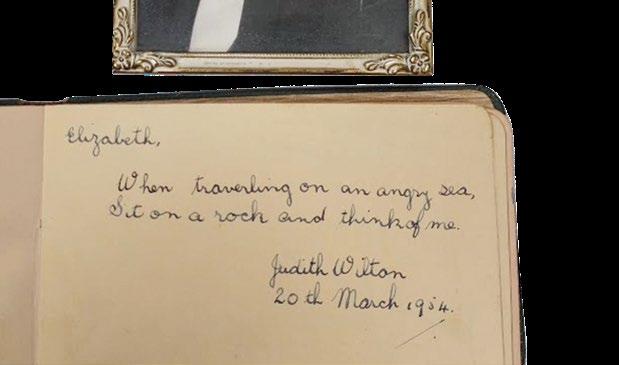 Elizabeth,
When traverling on an angry sea,
Sit on a rock and think of me.
Judith Wilton
20th March 1954.